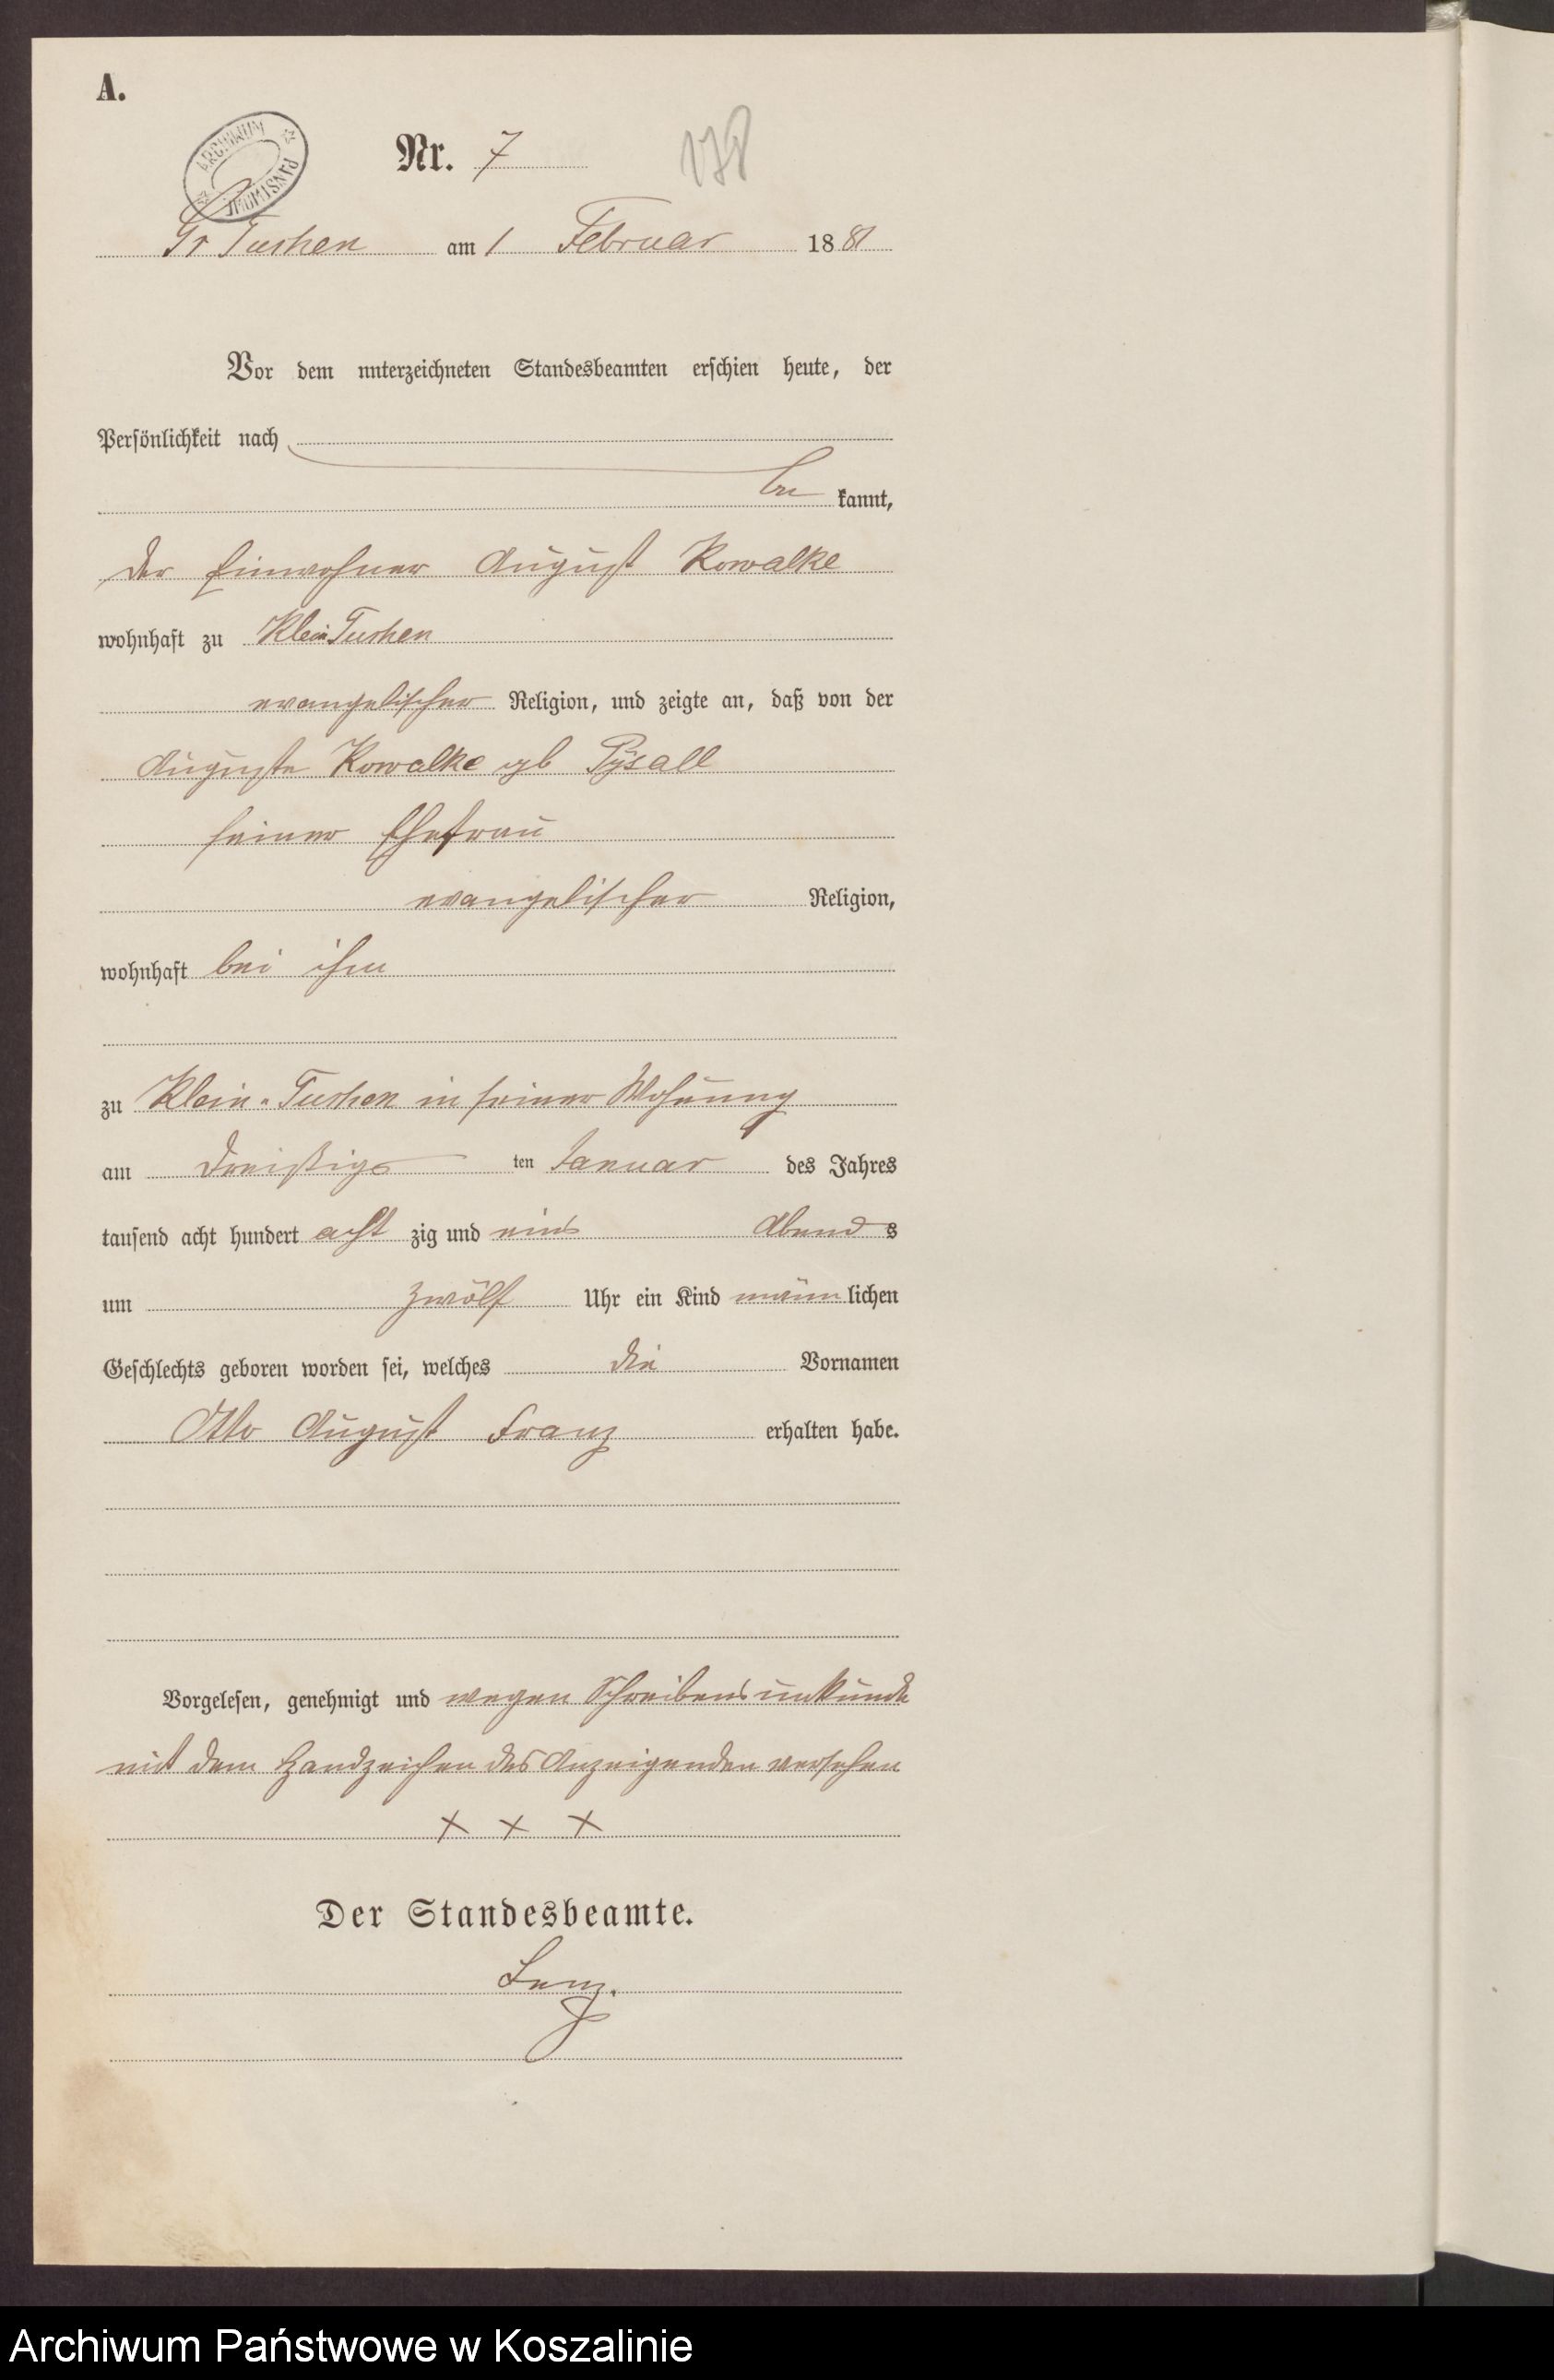 A.
ARCHIWUM PAŃSTWOWE
Nr. 7
178
Gr Tuchen am 1 Februar 1881
Vor dem unterzeichneten Standesbeamten erschien heute, der
Persönlichkeit nach
be kannt,
der Einwohner August Kowalke
wohnhaft zu Klein Tuchen
evangelischer Religion, und zeigte an, daß von der
Auguste Kowalke geb Pysall
seiner Ehefrau
evangelischer Religion,
wohnhaft bei ihm
zu Klein-Tuchen in seiner Wohnung
am dreißigs ten Januar des Jahres
tausend acht hundert acht zig und eins Abend s
um zwölf Uhr ein Kind männ lichen
Geschlechts geboren worden sei, welches die Vornamen
Otto August Franz erhalten habe.
Vorgelesen, genehmigt und wegen Schreibensunkunde
mit dem Handzeichen des Anzeigenden versehen
+ + +
Der Standesbeamte.
Lenz.
Archiwum Państwowe w Koszalinie